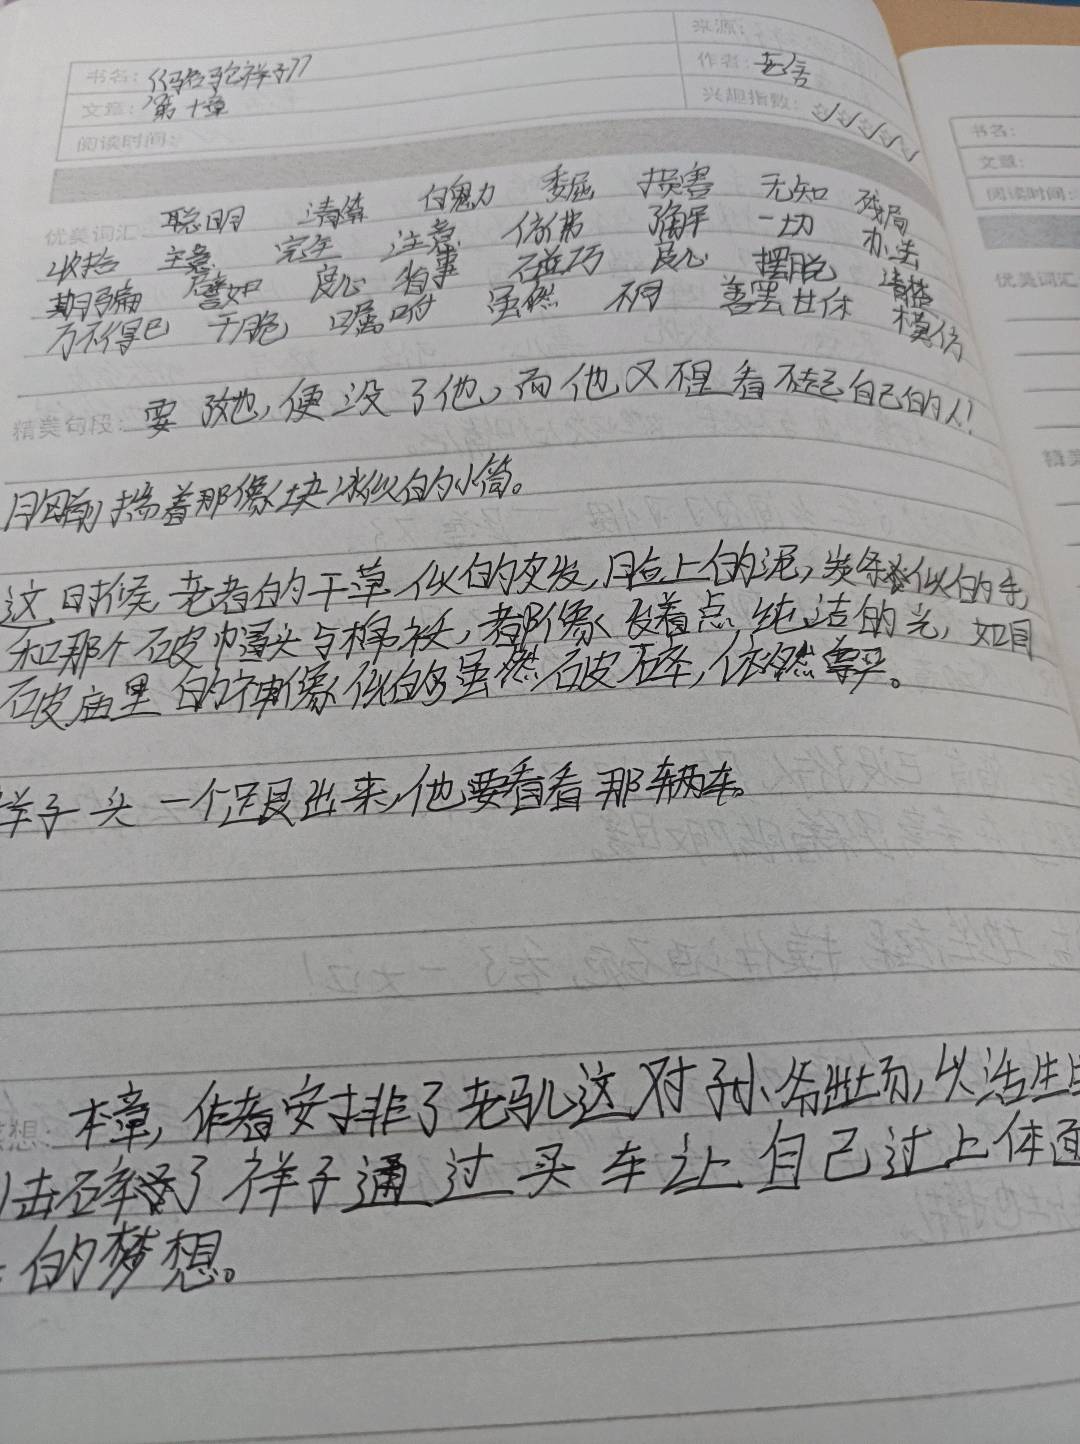 来源:
书名: 《骆驼祥子》
作者: 老舍
文章: 第十章
兴趣指数:
阅读时间:
优美词汇: 聪明 清算 白魁力 委屈 损害 无知 残局
收拾 主意 完全 注意 依弗 确乎 一切 办法
期骗 譬如 良心 省事 碰巧 良心 摆脱 清楚
万不得已 干脆 嘱咐 虽然 不同 善罢甘休 模仿
精美句段: 要了她,便没了他,而他又不是看不起自己的人!
胸前揣着那像块冰似的小筒。
这时候,老者的干草似的灰发,脸上的泥,炭条似的手,
和那个破帽头与棉袄,都像发着点纯洁的光,如同
破庙里的神像似的,虽然破碎,依然尊严。
祥子头一个跟出来,他要看看那辆车。
想: 本章,作者安排了老马儿这对爷孙出场,以活生生
击碎了祥子通过买车让自己过上体面
的梦想。
书名:
文章:
阅读时间:
优美词汇
精美